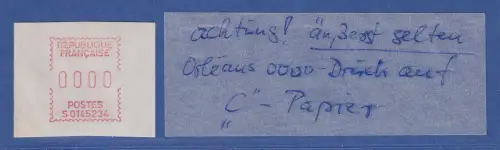 REPUBLIQUE
FRANÇAISE
0000
POSTES
S 0145234
achtung! äußerst selten
Orléans 0000-Druck auf
"C"-Papier